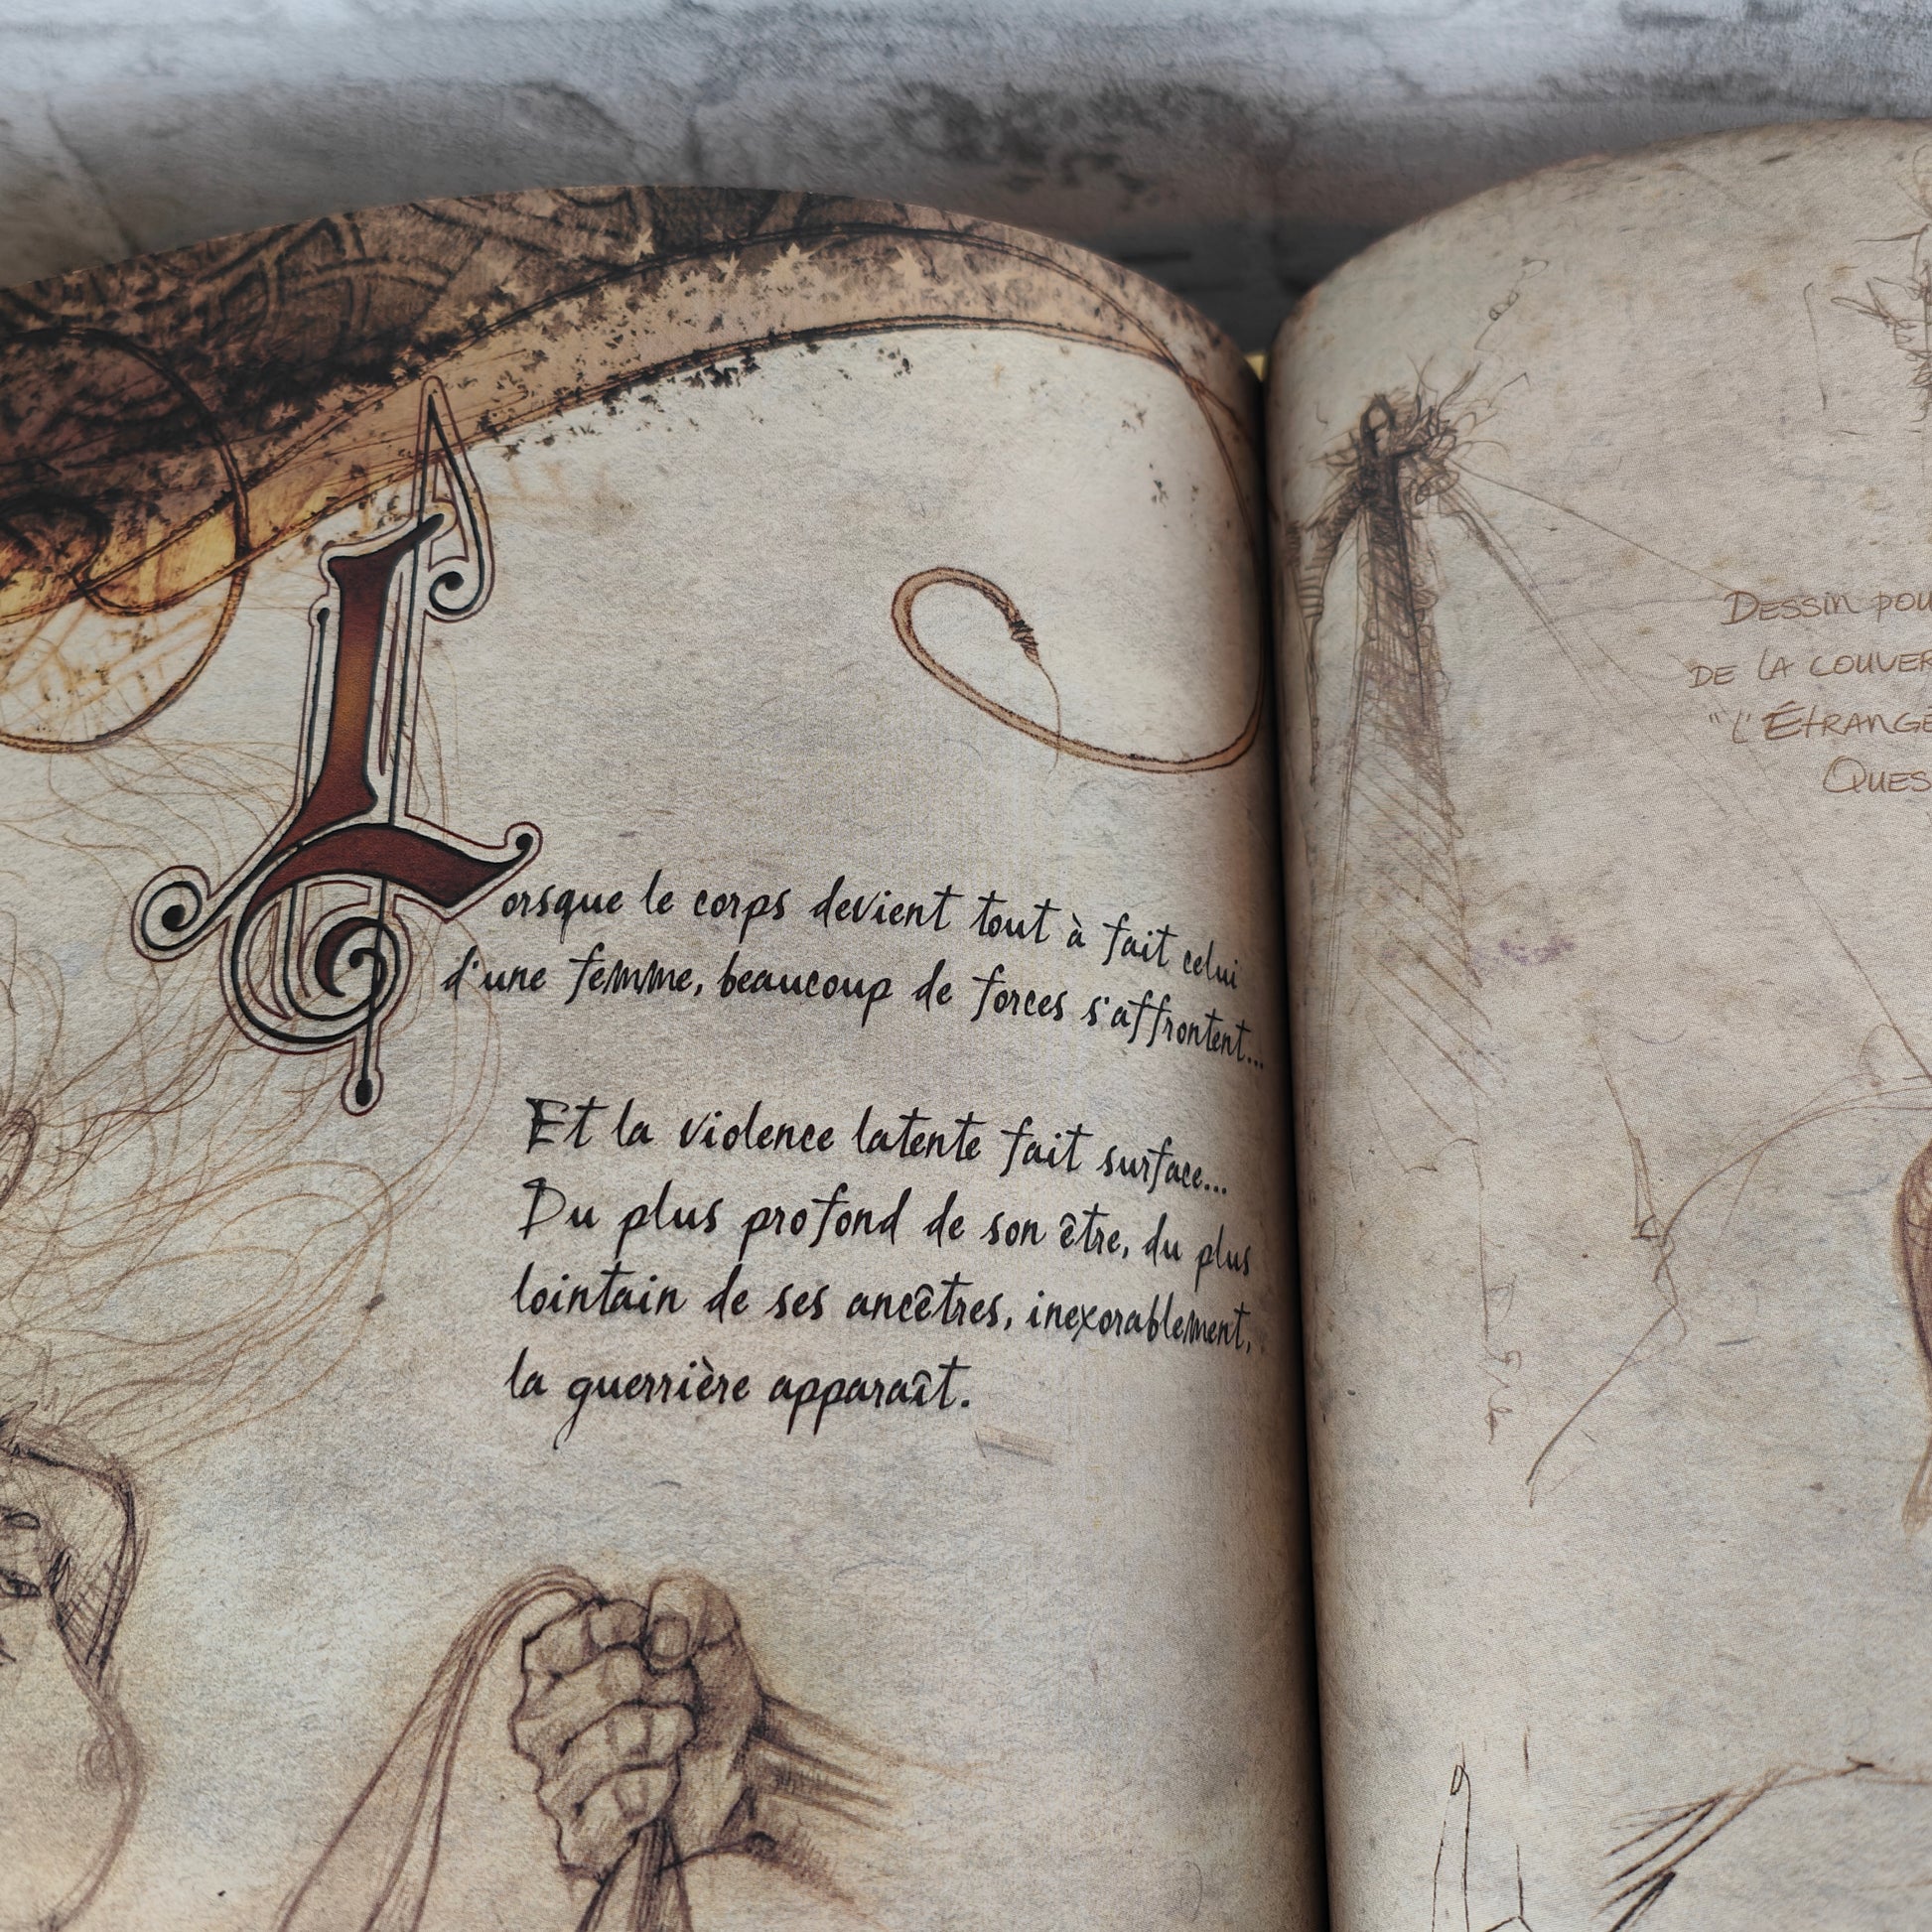 Lorsque le corps devient tout à fait celui
d'une femme, beaucoup de forces s'affrontent...
Et la violence latente fait surface...
Du plus profond de son être, du plus
lointain de ses ancêtres, inexorablement,
la guerrière apparaît.
Dessin
de la
"L'